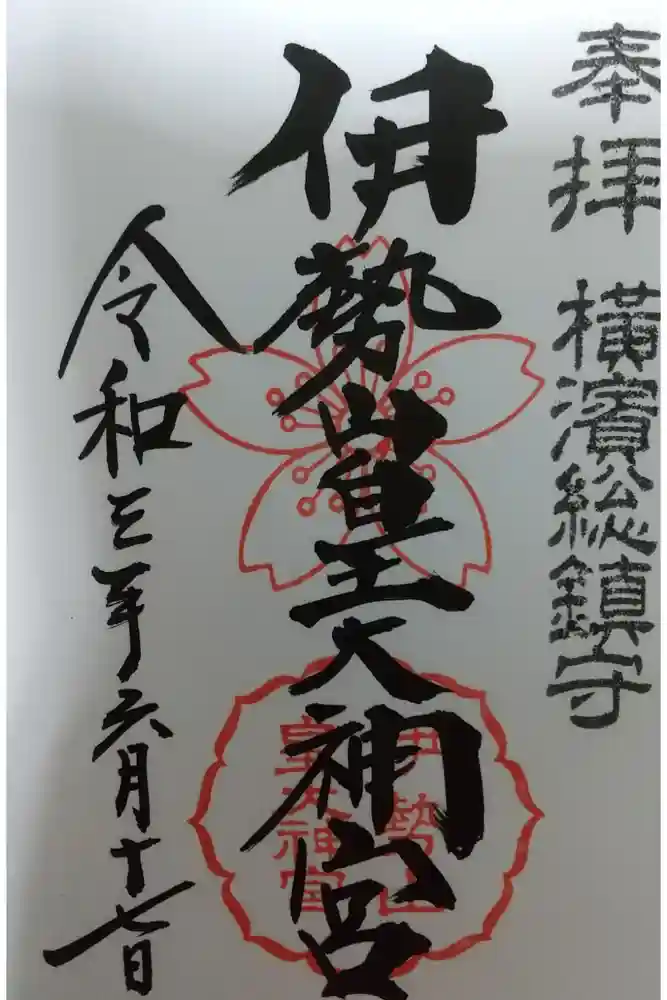 奉拝 横濱総鎮守
伊勢山皇大神宮
伊勢山
皇大神宮
令和三年六月十七日